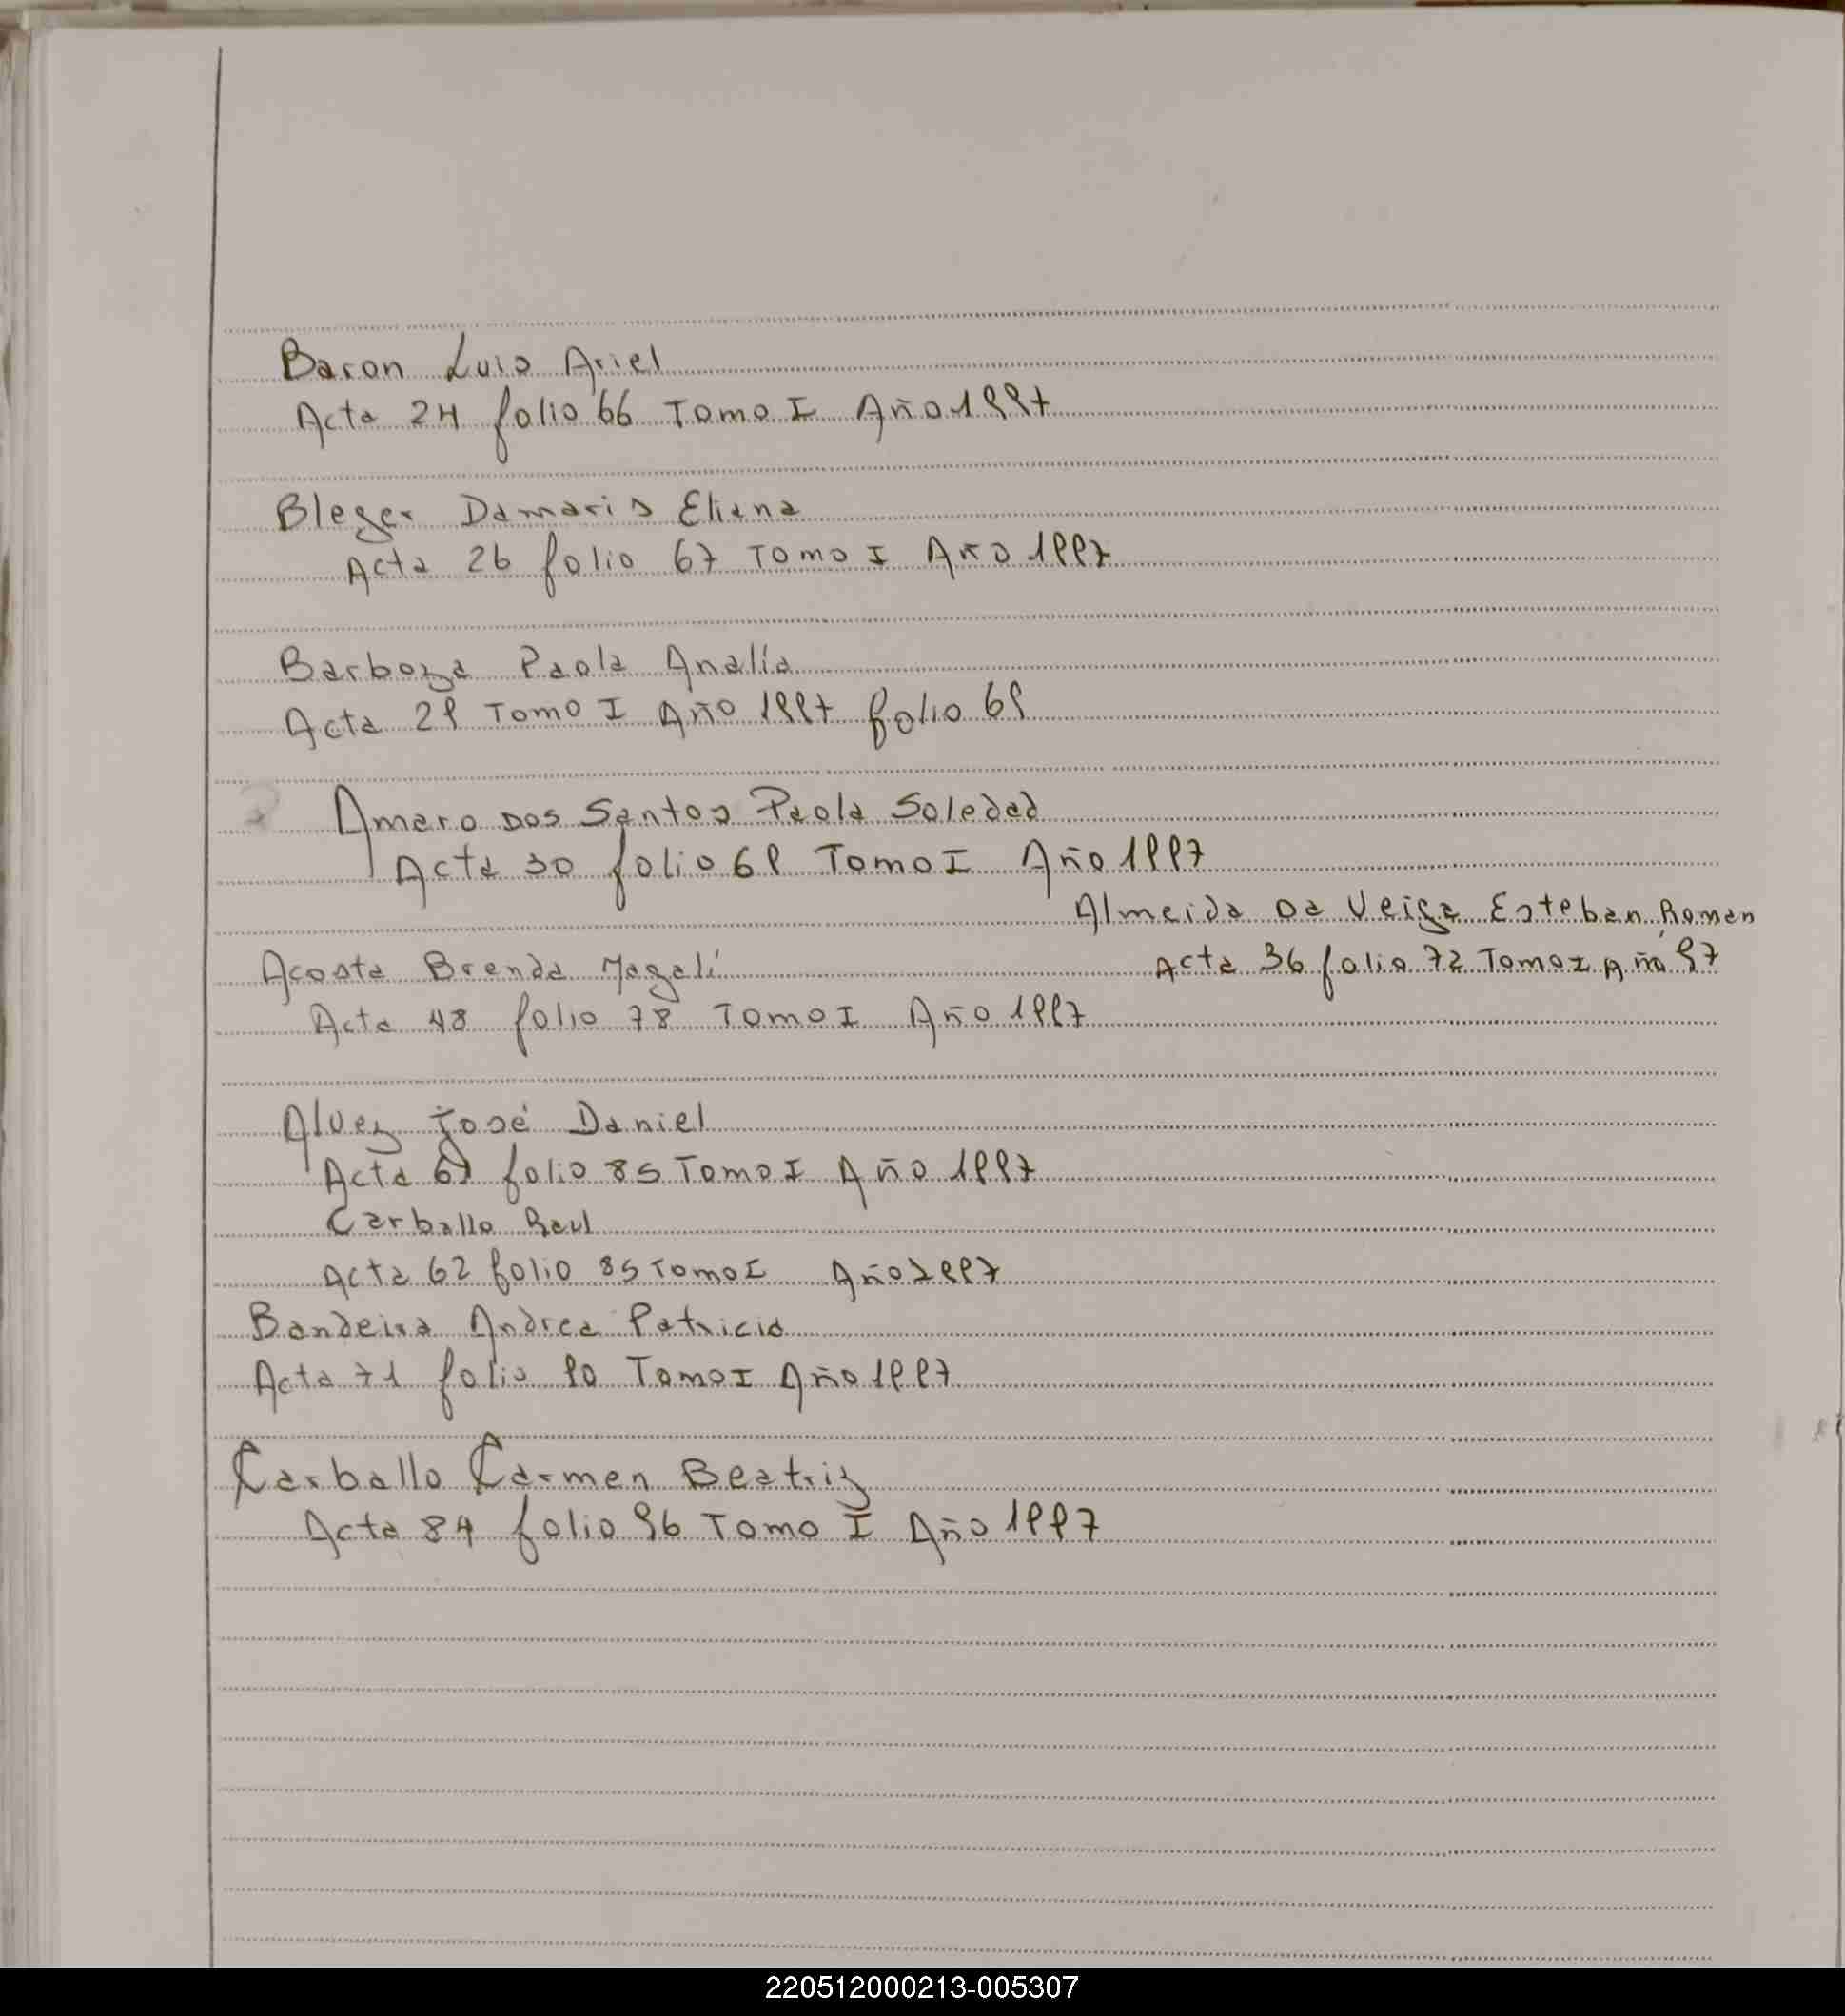 Baron Luis Ariel
Acta 24 folio 66 Tomo I Año 1997
Bleger Damaris Eliana
Acta 26 folio 67 Tomo I Año 1997
Barboza Paola Analía
Acta 29 Tomo I Año 1997 folio 69
Amaro Dos Santos Paola Soledad
Acta 30 folio 69 Tomo I Año 1997
Almeida Da Veiga Esteban Roman
Acta 36 folio 72 Tomo I Año 97
Acosta Brenda Magalí
Acta 48 folio 78 Tomo I Año 1997
Alvez José Daniel
Acta folio 85 Tomo I Año 1997
Carballo Raul
Acta 62 folio 85 Tomo I Año 1997
Bandeira Andrea Patricia
Acta 71 folio 90 Tomo I Año 1997
Carballo Carmen Beatriz
Acta 84 folio 96 Tomo I Año 1997
220512000213-005307